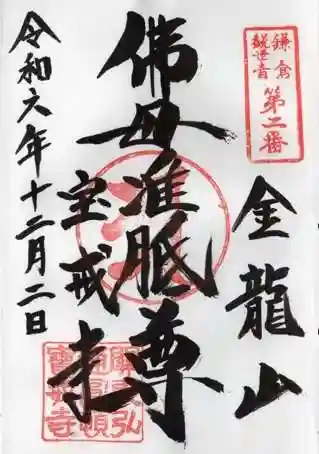 鎌倉
観世音
第二番
金龍山
佛母准胝尊
宝戒寺
令和六年十二月二日
寶戒寺